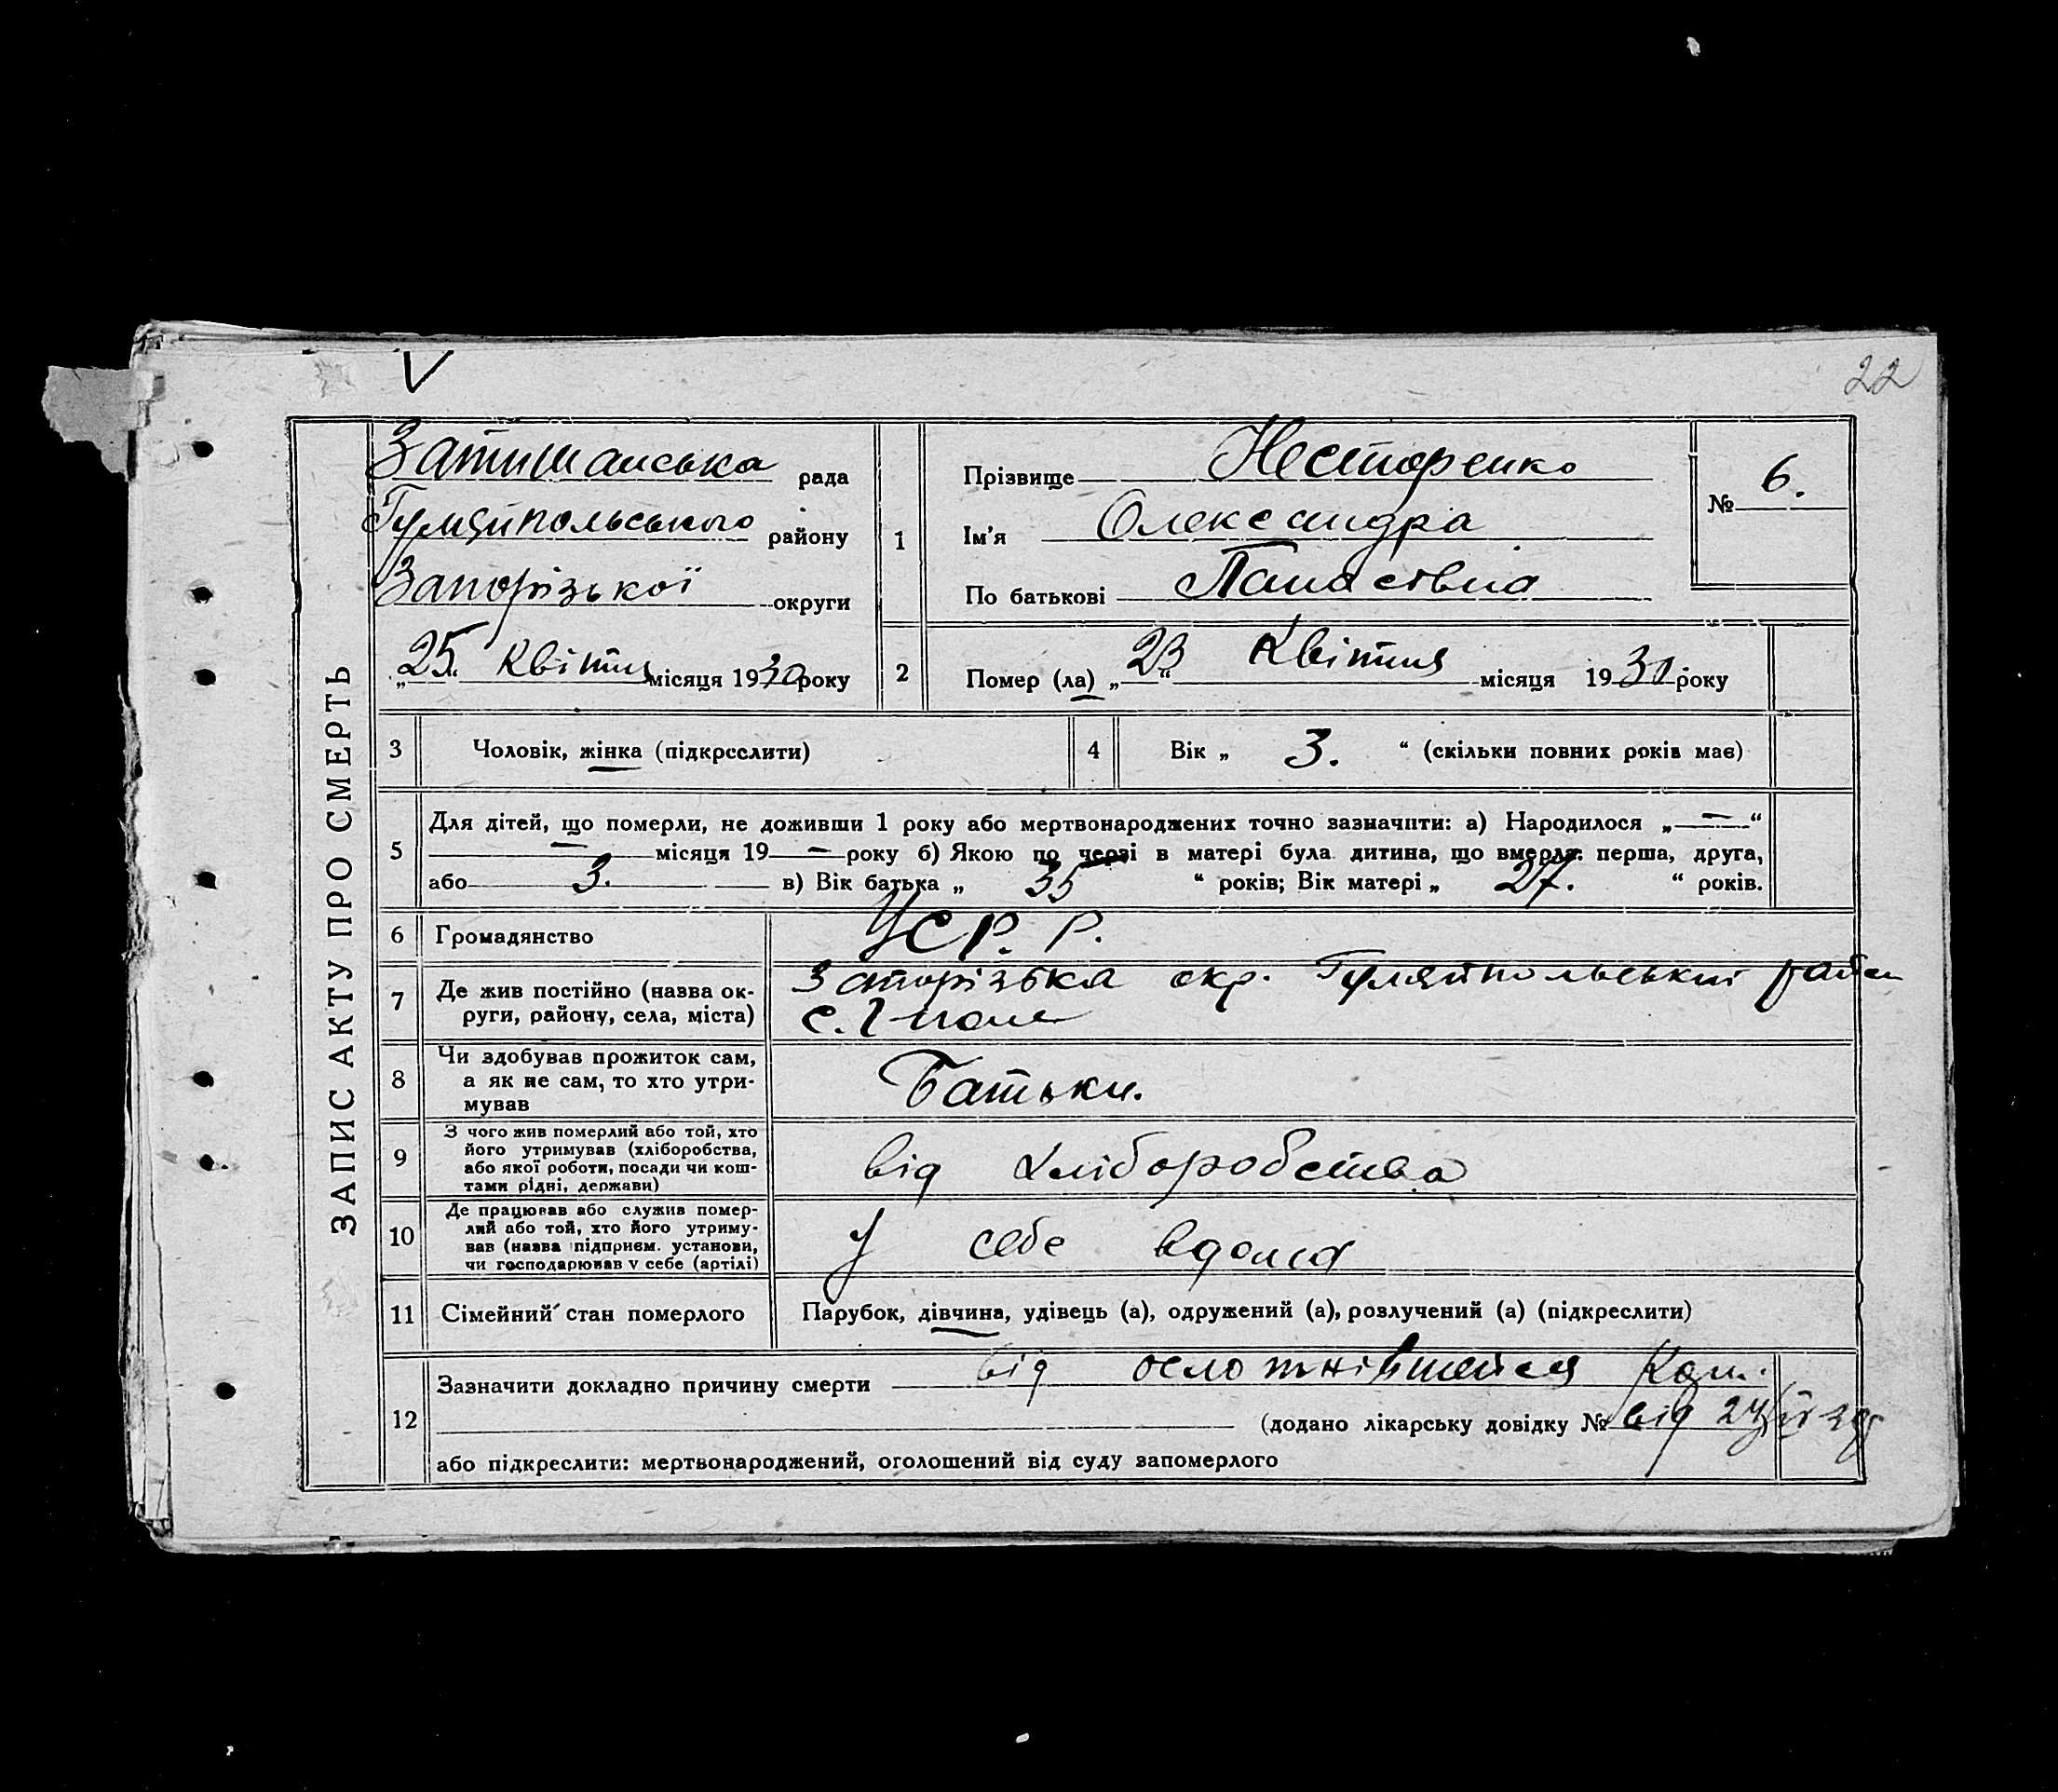 22
ЗАПИС АКТУ ПРО СМЕРТЬ
Затишанська рада
Гуляйпольського району
Запорізької округи
„25“ Квітня місяця 1930 року
1
Прізвище Несторенко
Ім'я Олександра
По батькові Панасівна
№ 6.
2
Помер (ла) „23“ Квітня місяця 1930 року
3 Чоловік, жінка (підкреслити)
4 Вік „ 3. “ (скільки повних років має)
5 Для дітей, що померли, не доживши 1 року або мертвонароджених точно зазначити: а) Народилося „—“
— місяця 19 — року б) Якою по черзі в матері була дитина, що вмерла: перша, друга,
або 3. в) Вік батька „ 35 “ років; Вік матері „ 27. “ років.
6 Громадянство УСР. Р.
7 Де жив постійно (назва ок-
руги, району, села, міста)
Запорізька окр. Гуляйпольський район
с. Г-поле
8 Чи здобував прожиток сам,
а як не сам, то хто утри-
мував
Батьки.
9 З чого жив померлий або той, хто
його утримував (хліборобства,
або якої роботи, посади чи кош-
тами рідні, держави)
від хліборобства
10 Де працював або служив помер-
лий або той, хто його утриму-
вав (назва підприєм. установи,
чи господарював у себе (артілі)
У себе вдома
11 Сімейний стан померлого Парубок, дівчина, удівець (а), одружений (а), розлучений (а) (підкреслити)
12 Зазначити докладно причину смерти від осложнівшейся
(додано лікарську довідку № від 24/IV-30р
або підкреслити: мертвонароджений, оголошений від суду запомерлого